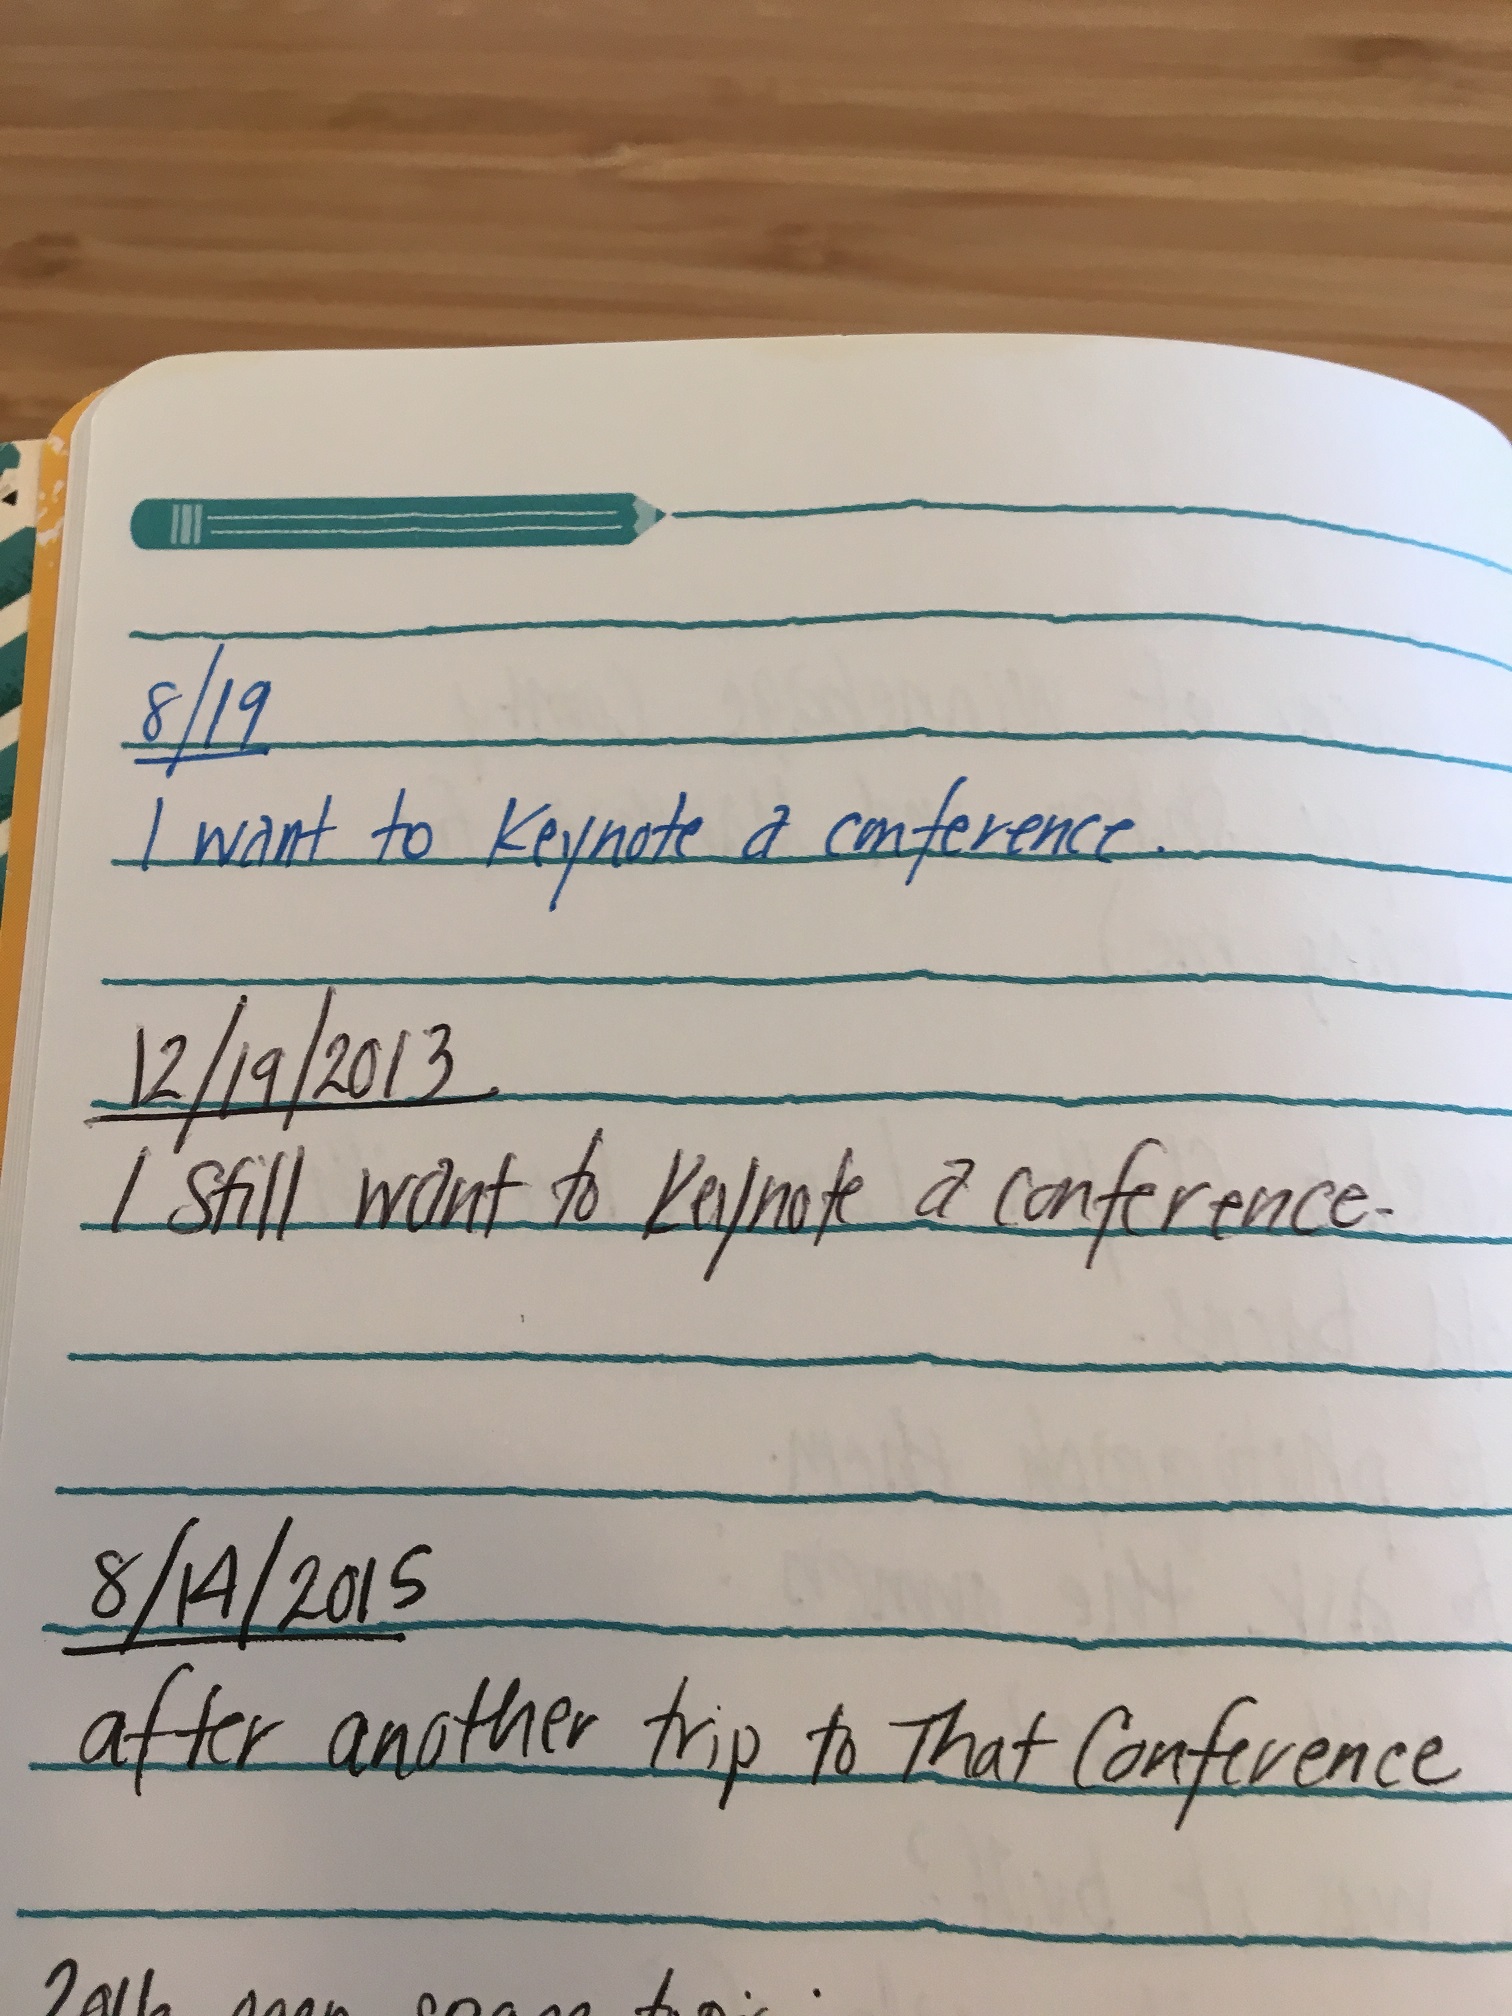 8/19
I want to Keynote a conference.
12/19/2013
I still want to Keynote a conference.
8/14/2015
after another trip to That Conference